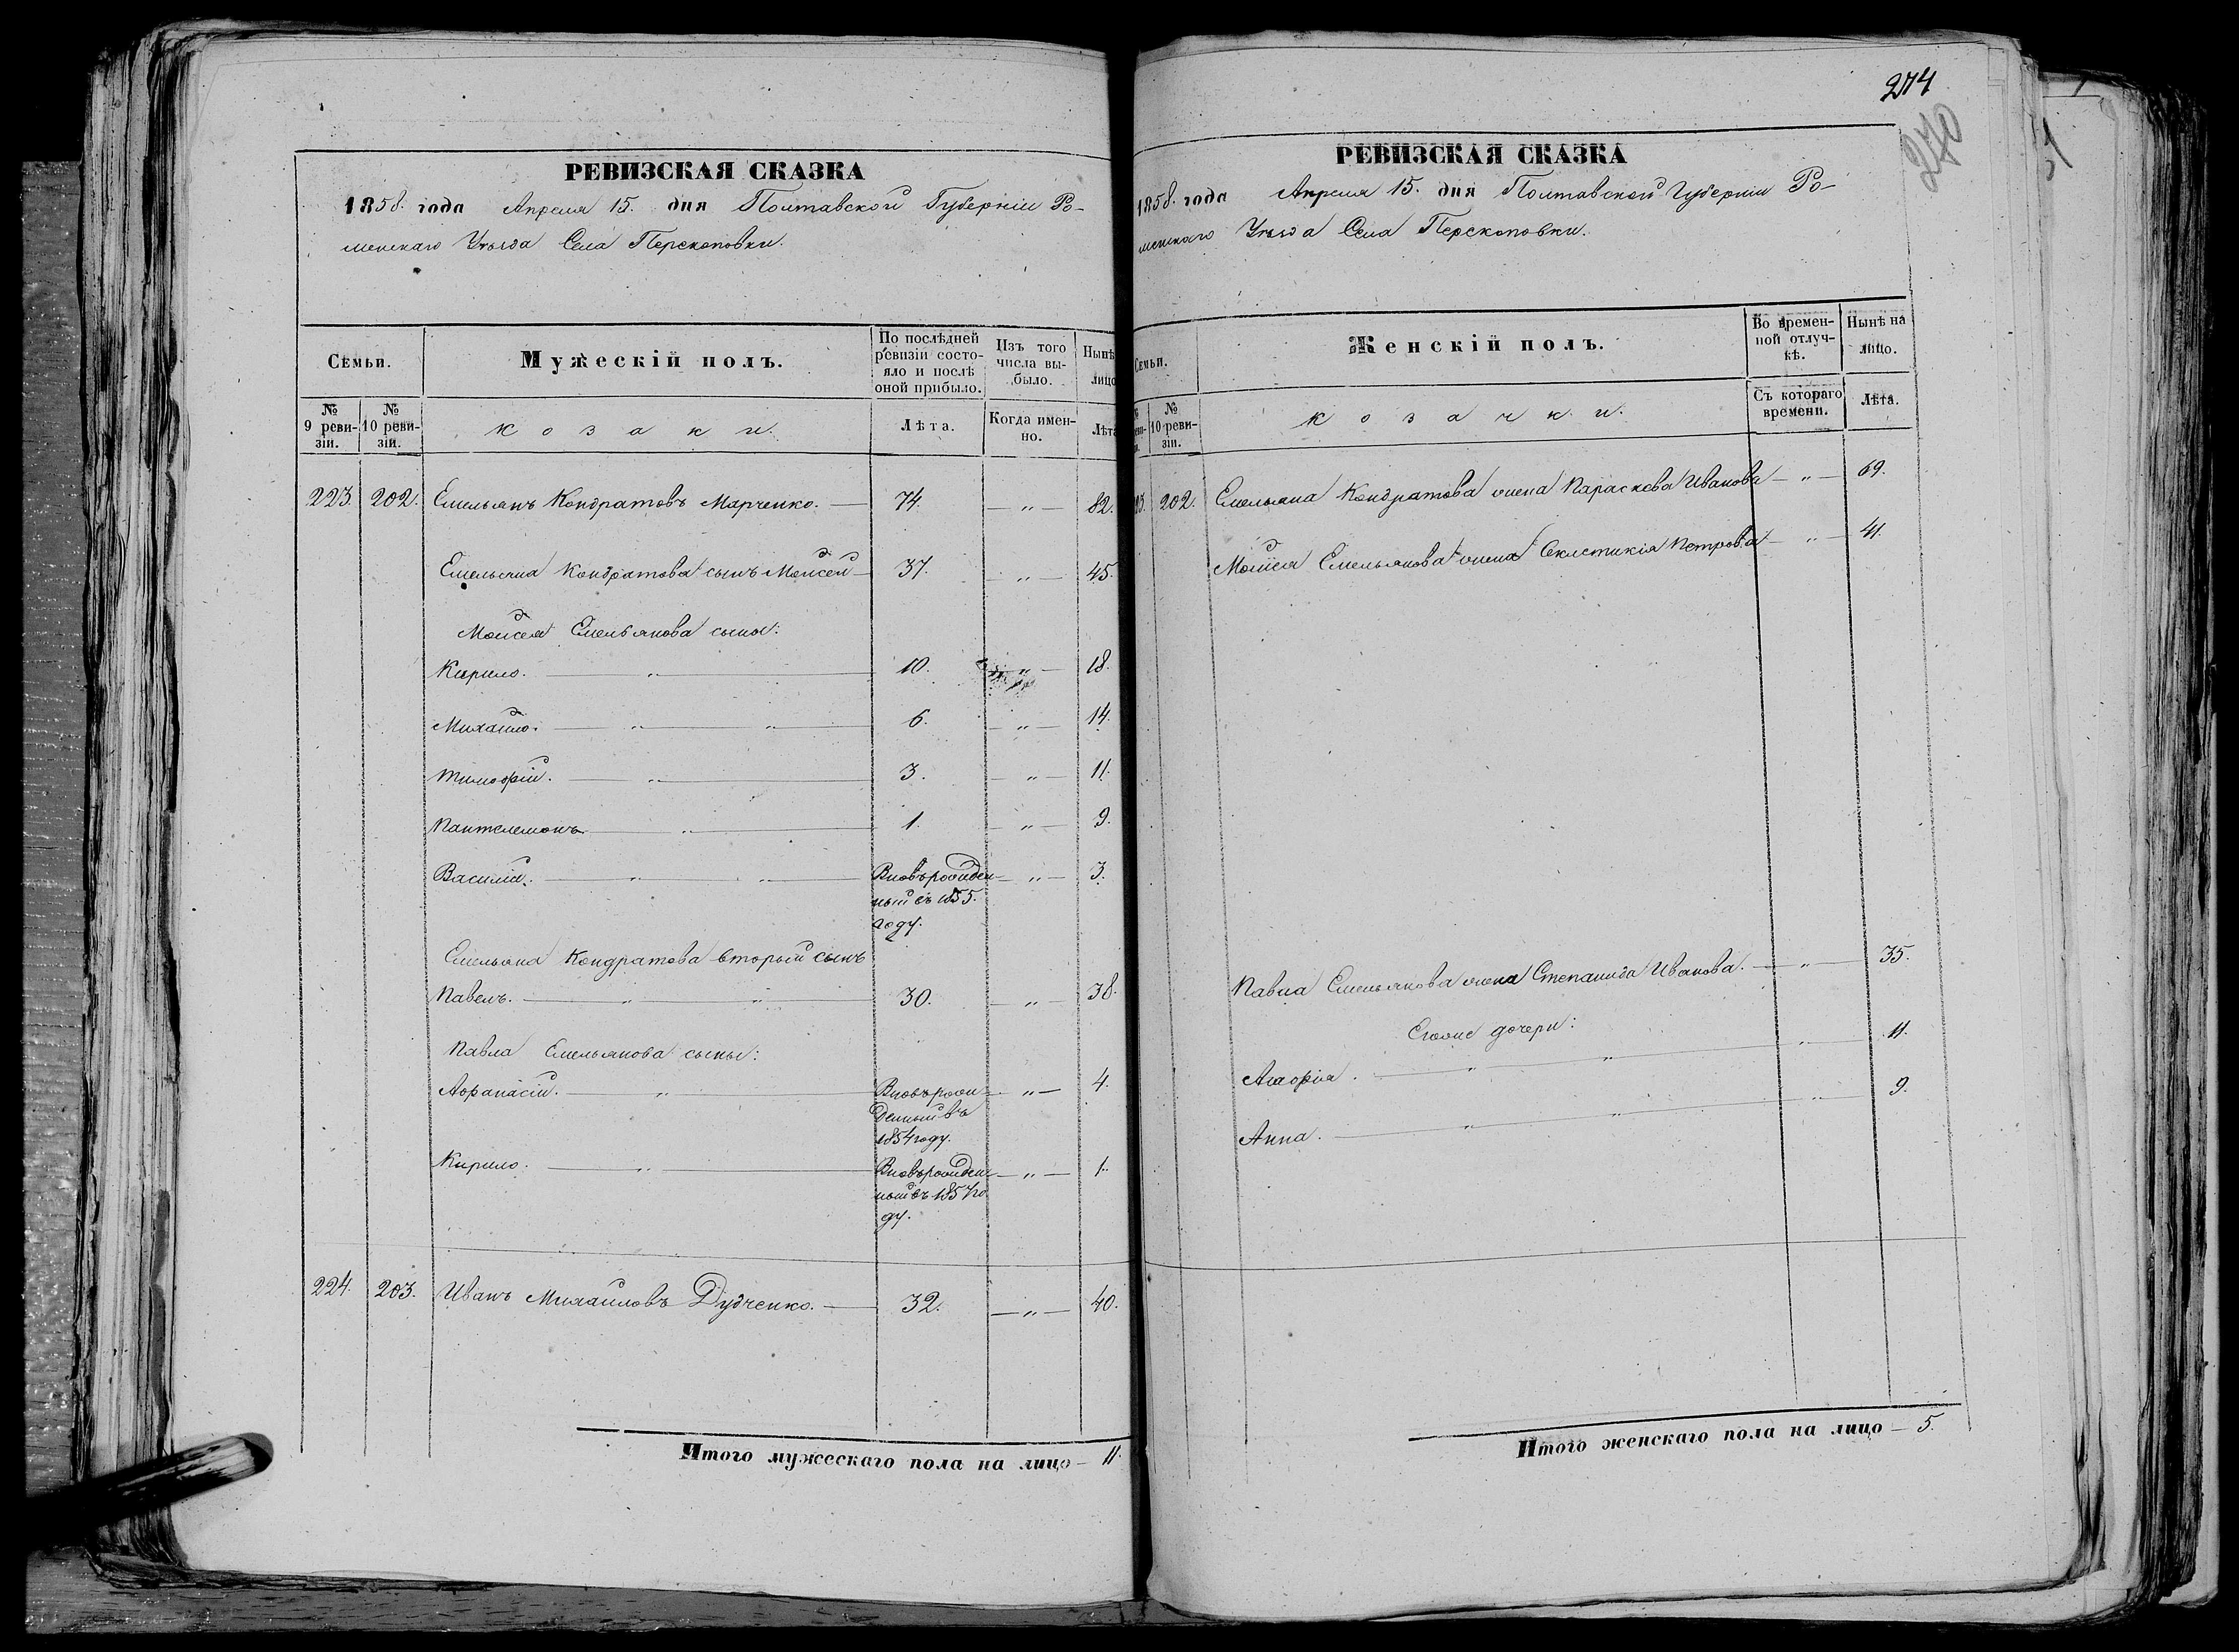 РЕВИЗСКАЯ СКАЗКА
1858. года Апреля 15. дня Полтавской Губерніи Ро-
менскаго Уѣзда Села Перекоповки.
Семьи.
Мужескій полъ.
По послѣдней ревизіи состо-
яло и послѣ
оной прибыло.
Изъ того
числа вы-
было.
Нынѣ
лицо
№
9 реви-
зіи.
№
10 реви-
зіи.
козаки.
Лѣта.
Когда имен-
но.
Лѣта
223. 202. Емельянъ Кондратовъ Марченко. — 74. — „ — 82.
Емельяна Кондратова сынъ Моисей — 37. — „ — 45.
Моисея Емельянова сыны:
Кирило. — „ — 10. — „ — 18.
Михайло. — „ — „ — 6. — „ — 14.
Тимофій. — „ — 3. — „ — 11.
Пантелемонъ. — „ — 1. — „ — 9.
Василій. — „ — „ — Вновьрожден- — „ — 3.
ный въ 1855.
году.
Емельяна Кондратова вторый сынъ
Павелъ. — „ — „ — 30. — „ — 38.
Павла Емельянова сыны:
Афанасій. — „ — Вновьрож- — „ — 4.
денный въ
1854 году.
Кирило. — „ — Вновьрожден- — „ — 1.
ный въ 1857 го
ду.
224. 203. Иванъ Михайловъ Дудченко. — 32. — „ — 40.
Итого мужескаго пола на лицо — 11.
274
270
РЕВИЗСКАЯ СКАЗКА
1858. года Апреля 15. дня Полтавской Губерніи Ро-
менскаго Уѣзда Села Перекоповки.
Семьи.
Женскій полъ.
Во времен-
ной отлуч-
кѣ.
Нынѣ на
лицо.
№
10 реви-
зіи.
козачки.
Съ котораго
времени.
Лѣта.
202. Емельяна Кондратова жена Параскева Иванова — „ — 69.
Моисея Емельянова жена Секлетикія Петрова — „ — 41.
Павла Емельянова жена Степанида Иванова. — „ — 35.
Егоже дочери:
Агафія. — „ — „ — „ — 11.
Анна. — „ — „ — „ — 9.
Итого женскаго пола на лицо — 5.